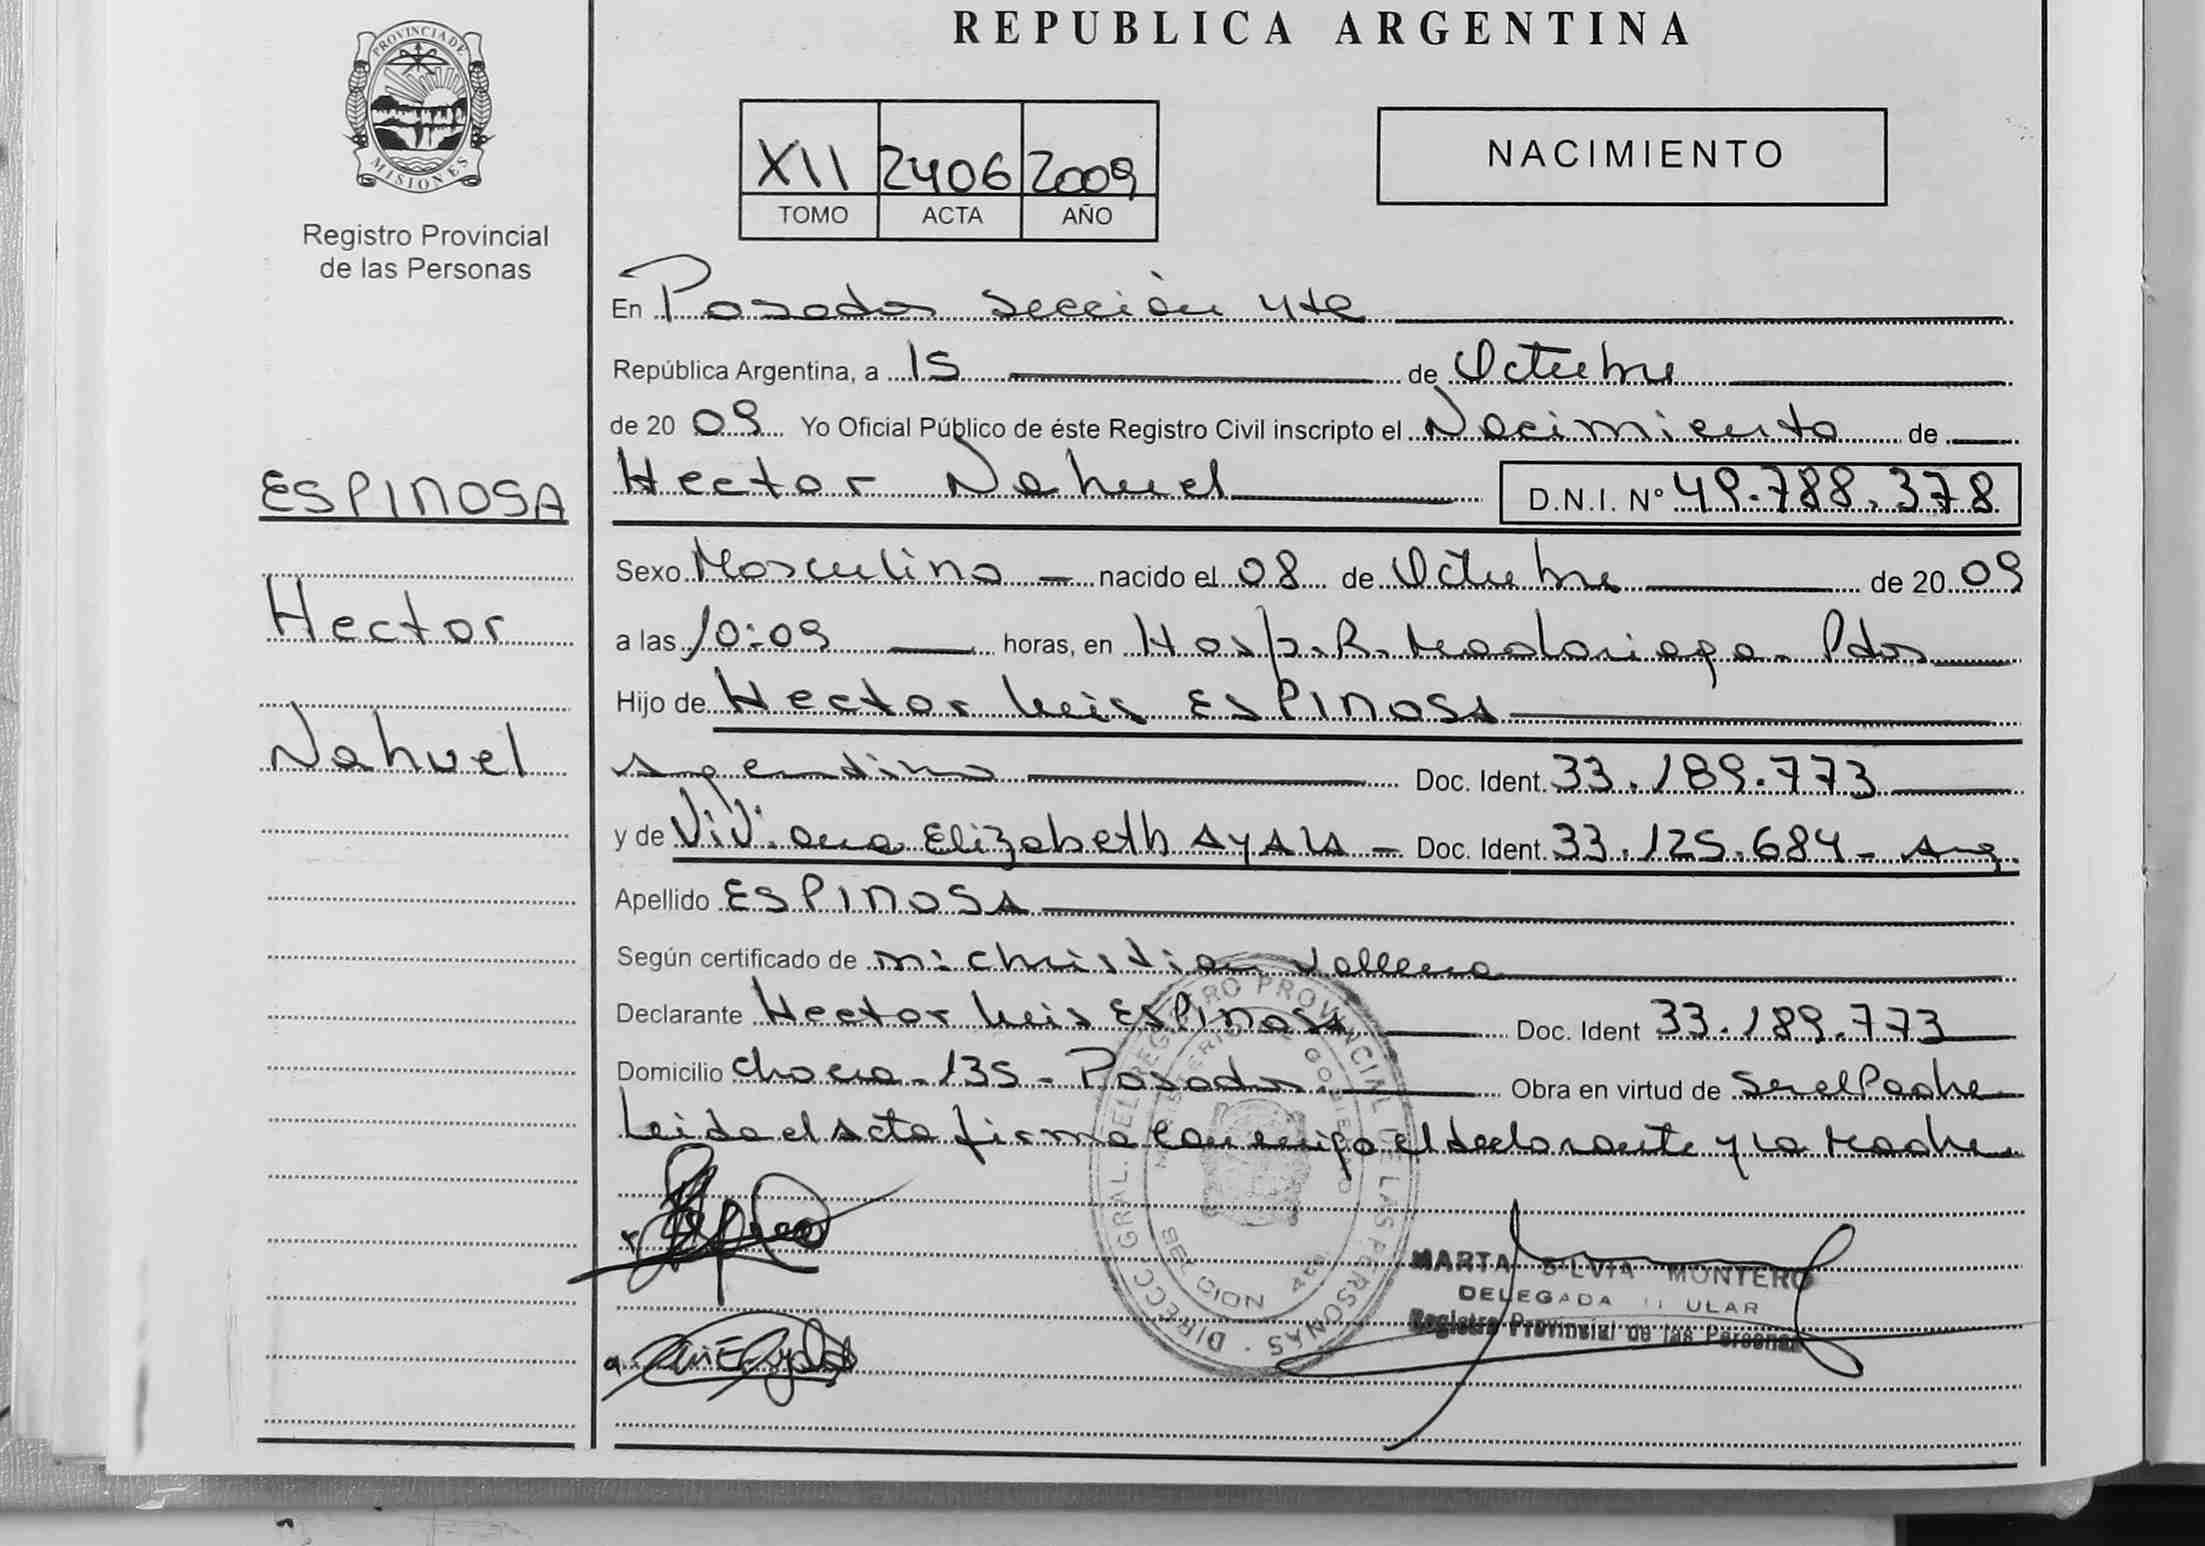 REPUBLICA ARGENTINA
PROVINCIA DE
MISIONES
Registro Provincial
de las Personas
XII 2406 2009
TOMO ACTA AÑO
NACIMIENTO
ESPINOSA
Hector
Nahuel
En Posadas sección 4ta
República Argentina, a 15 de Octubre
de 20 09 Yo Oficial Público de éste Registro Civil inscripto el Nacimiento de
Hector Nahuel D.N.I. Nº 49.788.378
Sexo Masculino - nacido el 08 de Octubre de 20 09
a las 10:09 horas, en Hosp. R. Madariaga - Pdas
Hijo de Hector Luis ESPINOSA
Argentino Doc. Ident. 33.189.773
y de Viviana Elizabeth AYALA - Doc. Ident. 33.125.684 - Arg.
Apellido ESPINOSA
Según certificado de Christian
Declarante Hector Luis ESPINOSA Doc. Ident 33.189.773
Domicilio Chacra - 135 - Posadas Obra en virtud de ser el Padre
Leida el Acta firma conmigo el declarante y la Madre
DIRECC. GRAL. DEL REGISTRO PROVINCIAL DE LAS PERSONAS
MINISTERIO DE GOBIERNO
SECCION 4ta
MARTA SILVIA MONTERO
DELEGADA TITULAR
Registro Provincial de las Personas